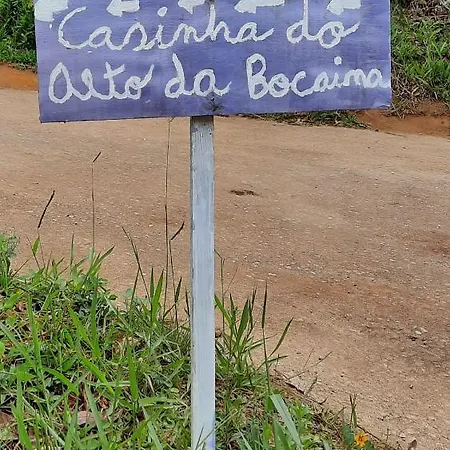 Casinha do
Alto da Bocaina